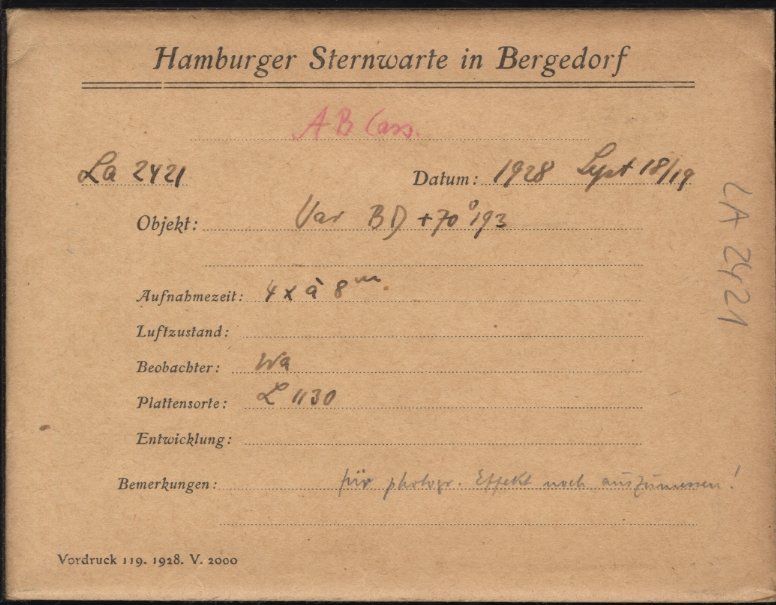 Hamburger Sternwarte in Bergedorf
AB Cass.
La 2421
Datum: 1928 Sept 18/19
Objekt: Var BD +70°193
Aufnahmezeit: 4 x à 8ᵐ
Luftzustand:
Beobachter: Wa
Plattensorte: L 1130
Entwicklung:
Bemerkungen: für photogr. Effekt noch auszumessen!
Vordruck 119. 1928. V. 2000
LA 2421